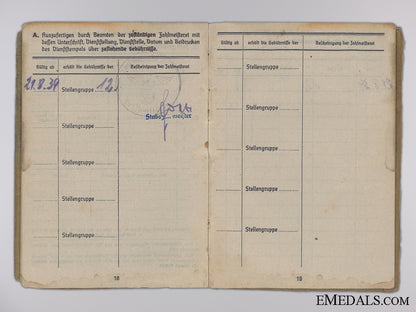 A. Auszufertigen durch Beamten der zuständigen Zahlmeisterei mit
dessen Unterschrift, Dienststellung, Dienststelle, Datum und Beidrucken
des Dienststempels über zustehende Gebührnisse.
Gültig ab erhält die Gebührnisse der Bescheinigung der Zahlmeisterei
21.8.39 Stellengruppe 12
Stabszahlmeister
Stellengruppe
Stellengruppe
Stellengruppe
Stellengruppe
18
Gültig ab erhält die Gebührnisse der Bescheinigung der Zahlmeisterei
Stellengruppe
Stellengruppe
Stellengruppe
Stellengruppe
Stellengruppe
19
EMEDALS.COM